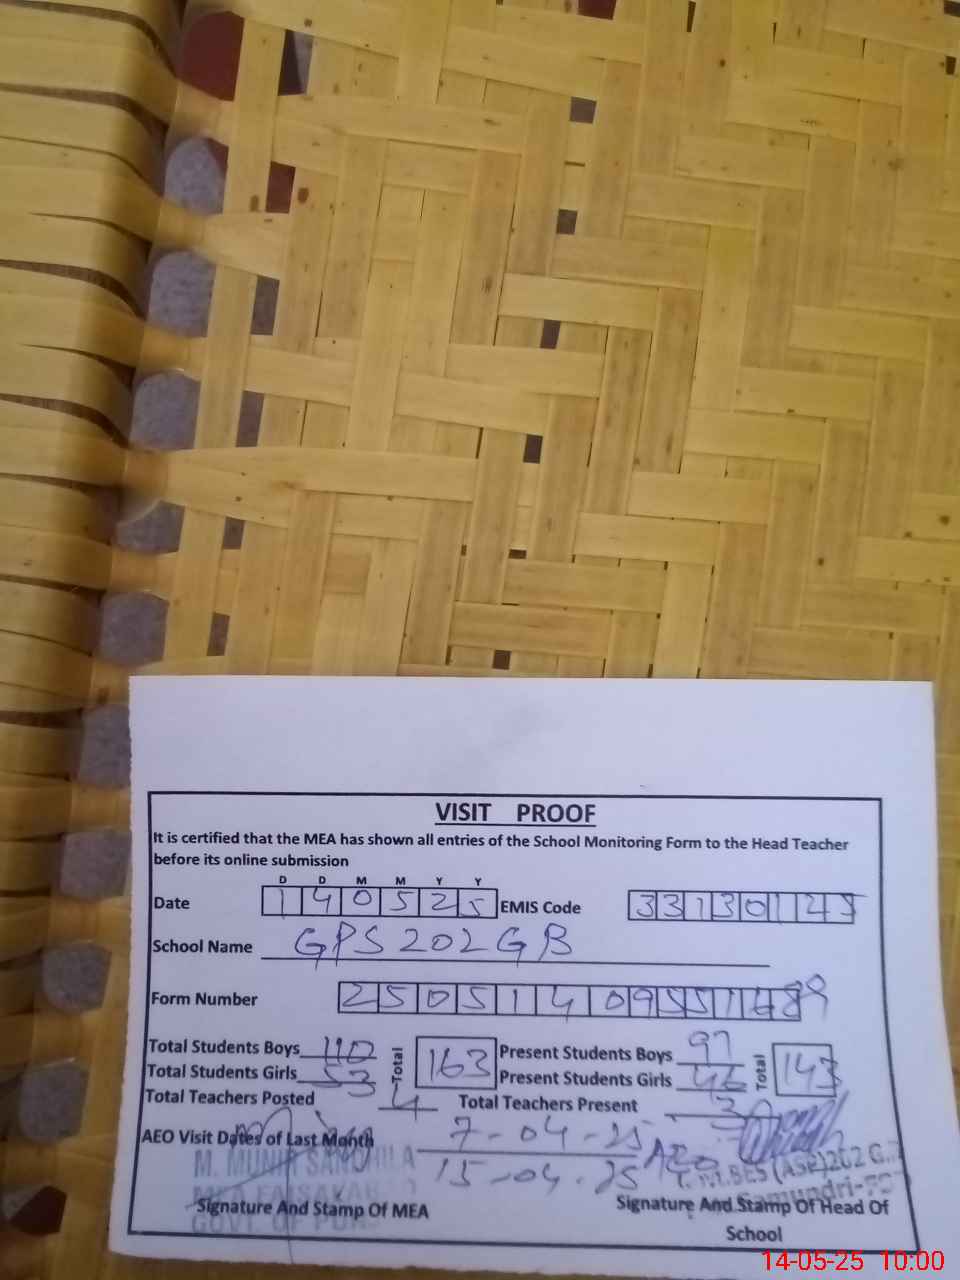 VISIT PROOF
It is certified that the MEA has shown all entries of the School Monitoring Form to the Head Teacher
before its online submission
D D M M Y Y
Date 140525 EMIS Code 33130145
School Name GPS 202 GB
Form Number 2505140955
Total Students Boys 110 Total 163 Present Students Boys 97 Total 143
Total Students Girls 53 Present Students Girls 46
Total Teachers Posted 4 Total Teachers Present 3
AEO Visit Dates of Last Month 7-04-25
15-04-25
M. MUNIR SANDHILA
MEA FAISALABAD
GOVT. OF
(ASP) 202 G.B
Samundri
Signature And Stamp Of MEA Signature And Stamp Of Head Of
School
14-05-25 10:00